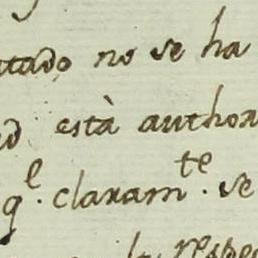 tado no se ha
està author
q.^e claram.^te se
respe